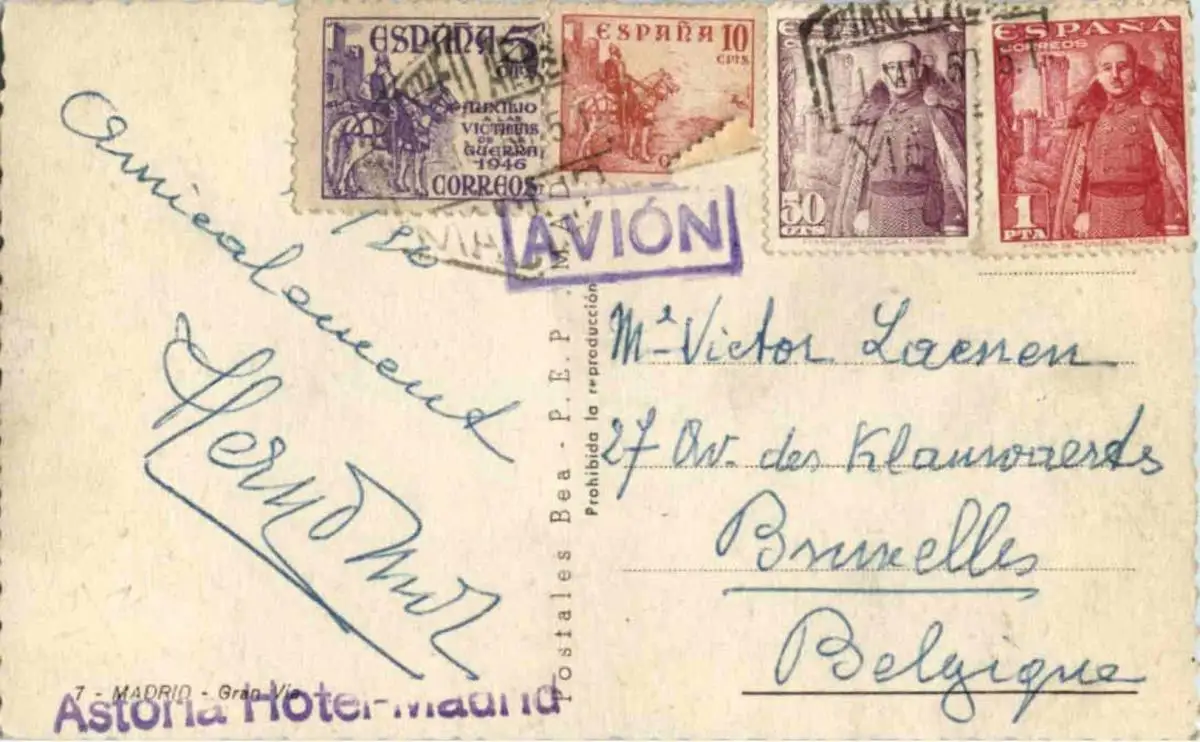 ESPAÑA 5 CTS
AUXILIO
A LAS
VICTIMAS
DE LA
GUERRA
1946
CORREOS
ESPAÑA 10
CTS.
ESPAÑA
50
CTS
ESPAÑA
CORREOS
1
PTA
AVIÓN
Amicalement
Mr Victor Laenen
27 Av. des Klauwaerts
Bruxelles
Belgique
Postales Bea - P.E.P.
Prohibida la reproducción
7 - MADRID - Gran Vía
Astoria Hotel-Madrid